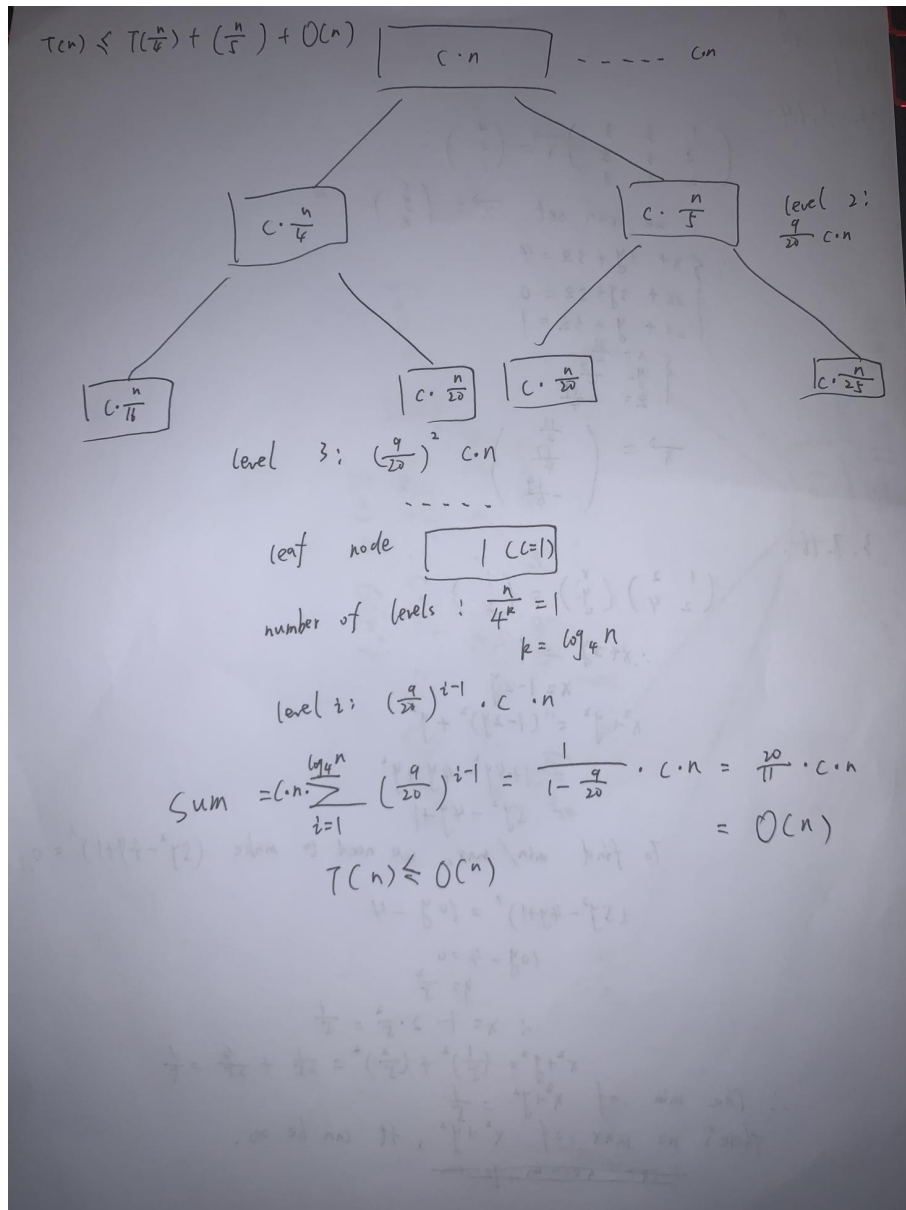 T(n) ≤ T(n/4) + (n/5) + O(n)
c·n ----- c·n
c·n/4 c·n/5 level 2:
9/20 c·n
c·n/16 c·n/20 c·n/20 c·n/25
level 3: (9/20)^2 c·n
-----
leaf node 1 (c=1)
number of levels: n/4^k = 1
k = log_4 n
level i: (9/20)^{i-1} · c · n
Sum = c·n·∑_{i=1}^{log_4 n} (9/20)^{i-1} = 1/(1 - 9/20) · c·n = 20/11 · c·n
= O(n)
T(n) ≤ O(n)